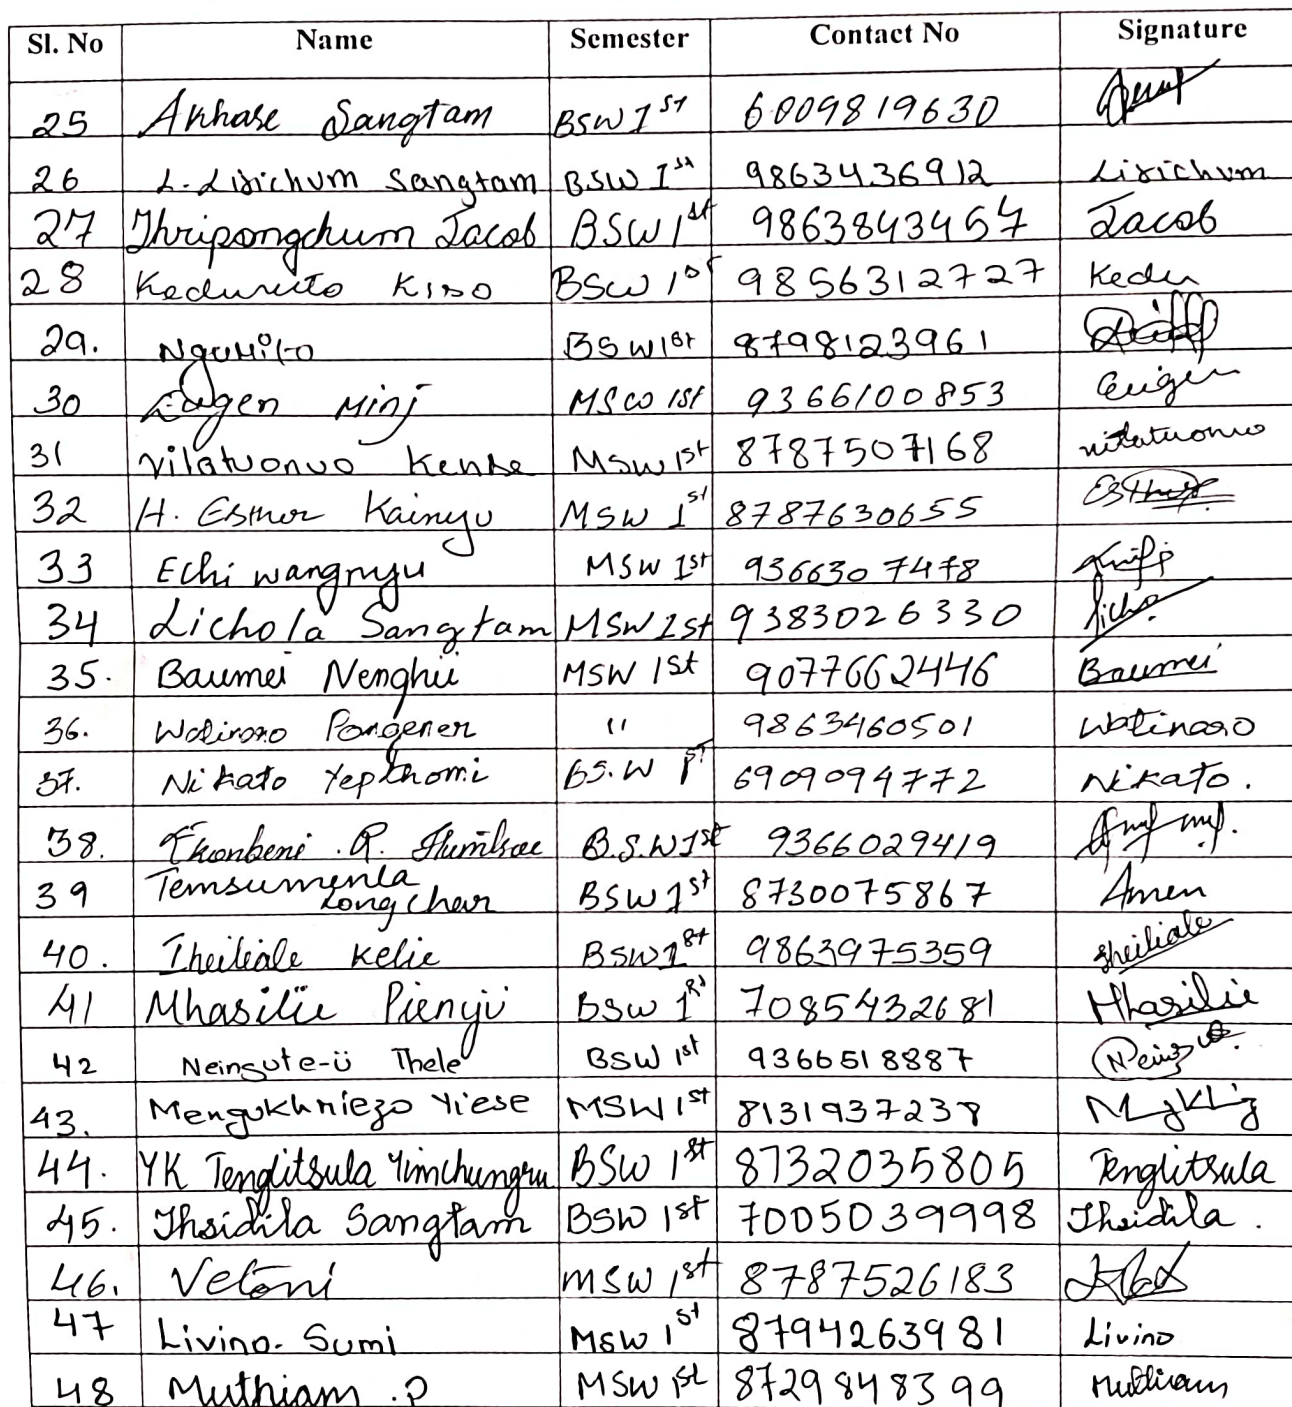 Sl. No Name Semester Contact No Signature
25 Akhase Sangtam BSW 1st 6009819630
26 L. Lisichum Sangtam BSW 1st 9863436912 Lisichum
27 Thripongchum Jacob BSW 1st 9863843457 Jacob
28 Keduneito Kiso BSW 1st 9856312727 Kedu
29. BSW 1st 8798123961
30 Eugen Minj MSW 1st 9366100853 Eugen
31 Vilatuonuo Kense MSW 1st 8787507168 vilatuonuo
32 H. Esther Kainyu MSW 1st 8787630655 Esther
33 Echi wangnyu MSW 1st 9366307478
34 Lichola Sangtam MSW 1st 9383026330 Licho
35. Baumei Nenghii MSW 1st 9077662446 Baumei
36. Watinaro Pongener " 9863460501 Watinaro
37. Nikato Yepthomi BS.W 1st 6909094772 Nikato.
38. B.S.W 1st 9366029419
39 Temsumenla
Longchar BSW 1st 8730075867 Amen
40. Theiliale Kelie BSW 1st 9863975359 Theiliale
41 Mhasilie Pienyü BSW 1 7085432681 Mhasilie
42 Neingute-ü Thele BSW 1st 9366518887
43. Mengukhriezo Yiese MSW 1st 8131937238
44. YK Tenglitsula Yimchungru BSW 1st 8732035805 Tenglitsula
45. Thsidila Sangtam BSW 1st 7005039998 Thsidila.
46. Vetoni MSW 1st 8787526183
47 Livino. Sumi MSW 1st 8794263981 Livino
48 Muthiam .P MSW 1st 8729848399 Muthiam